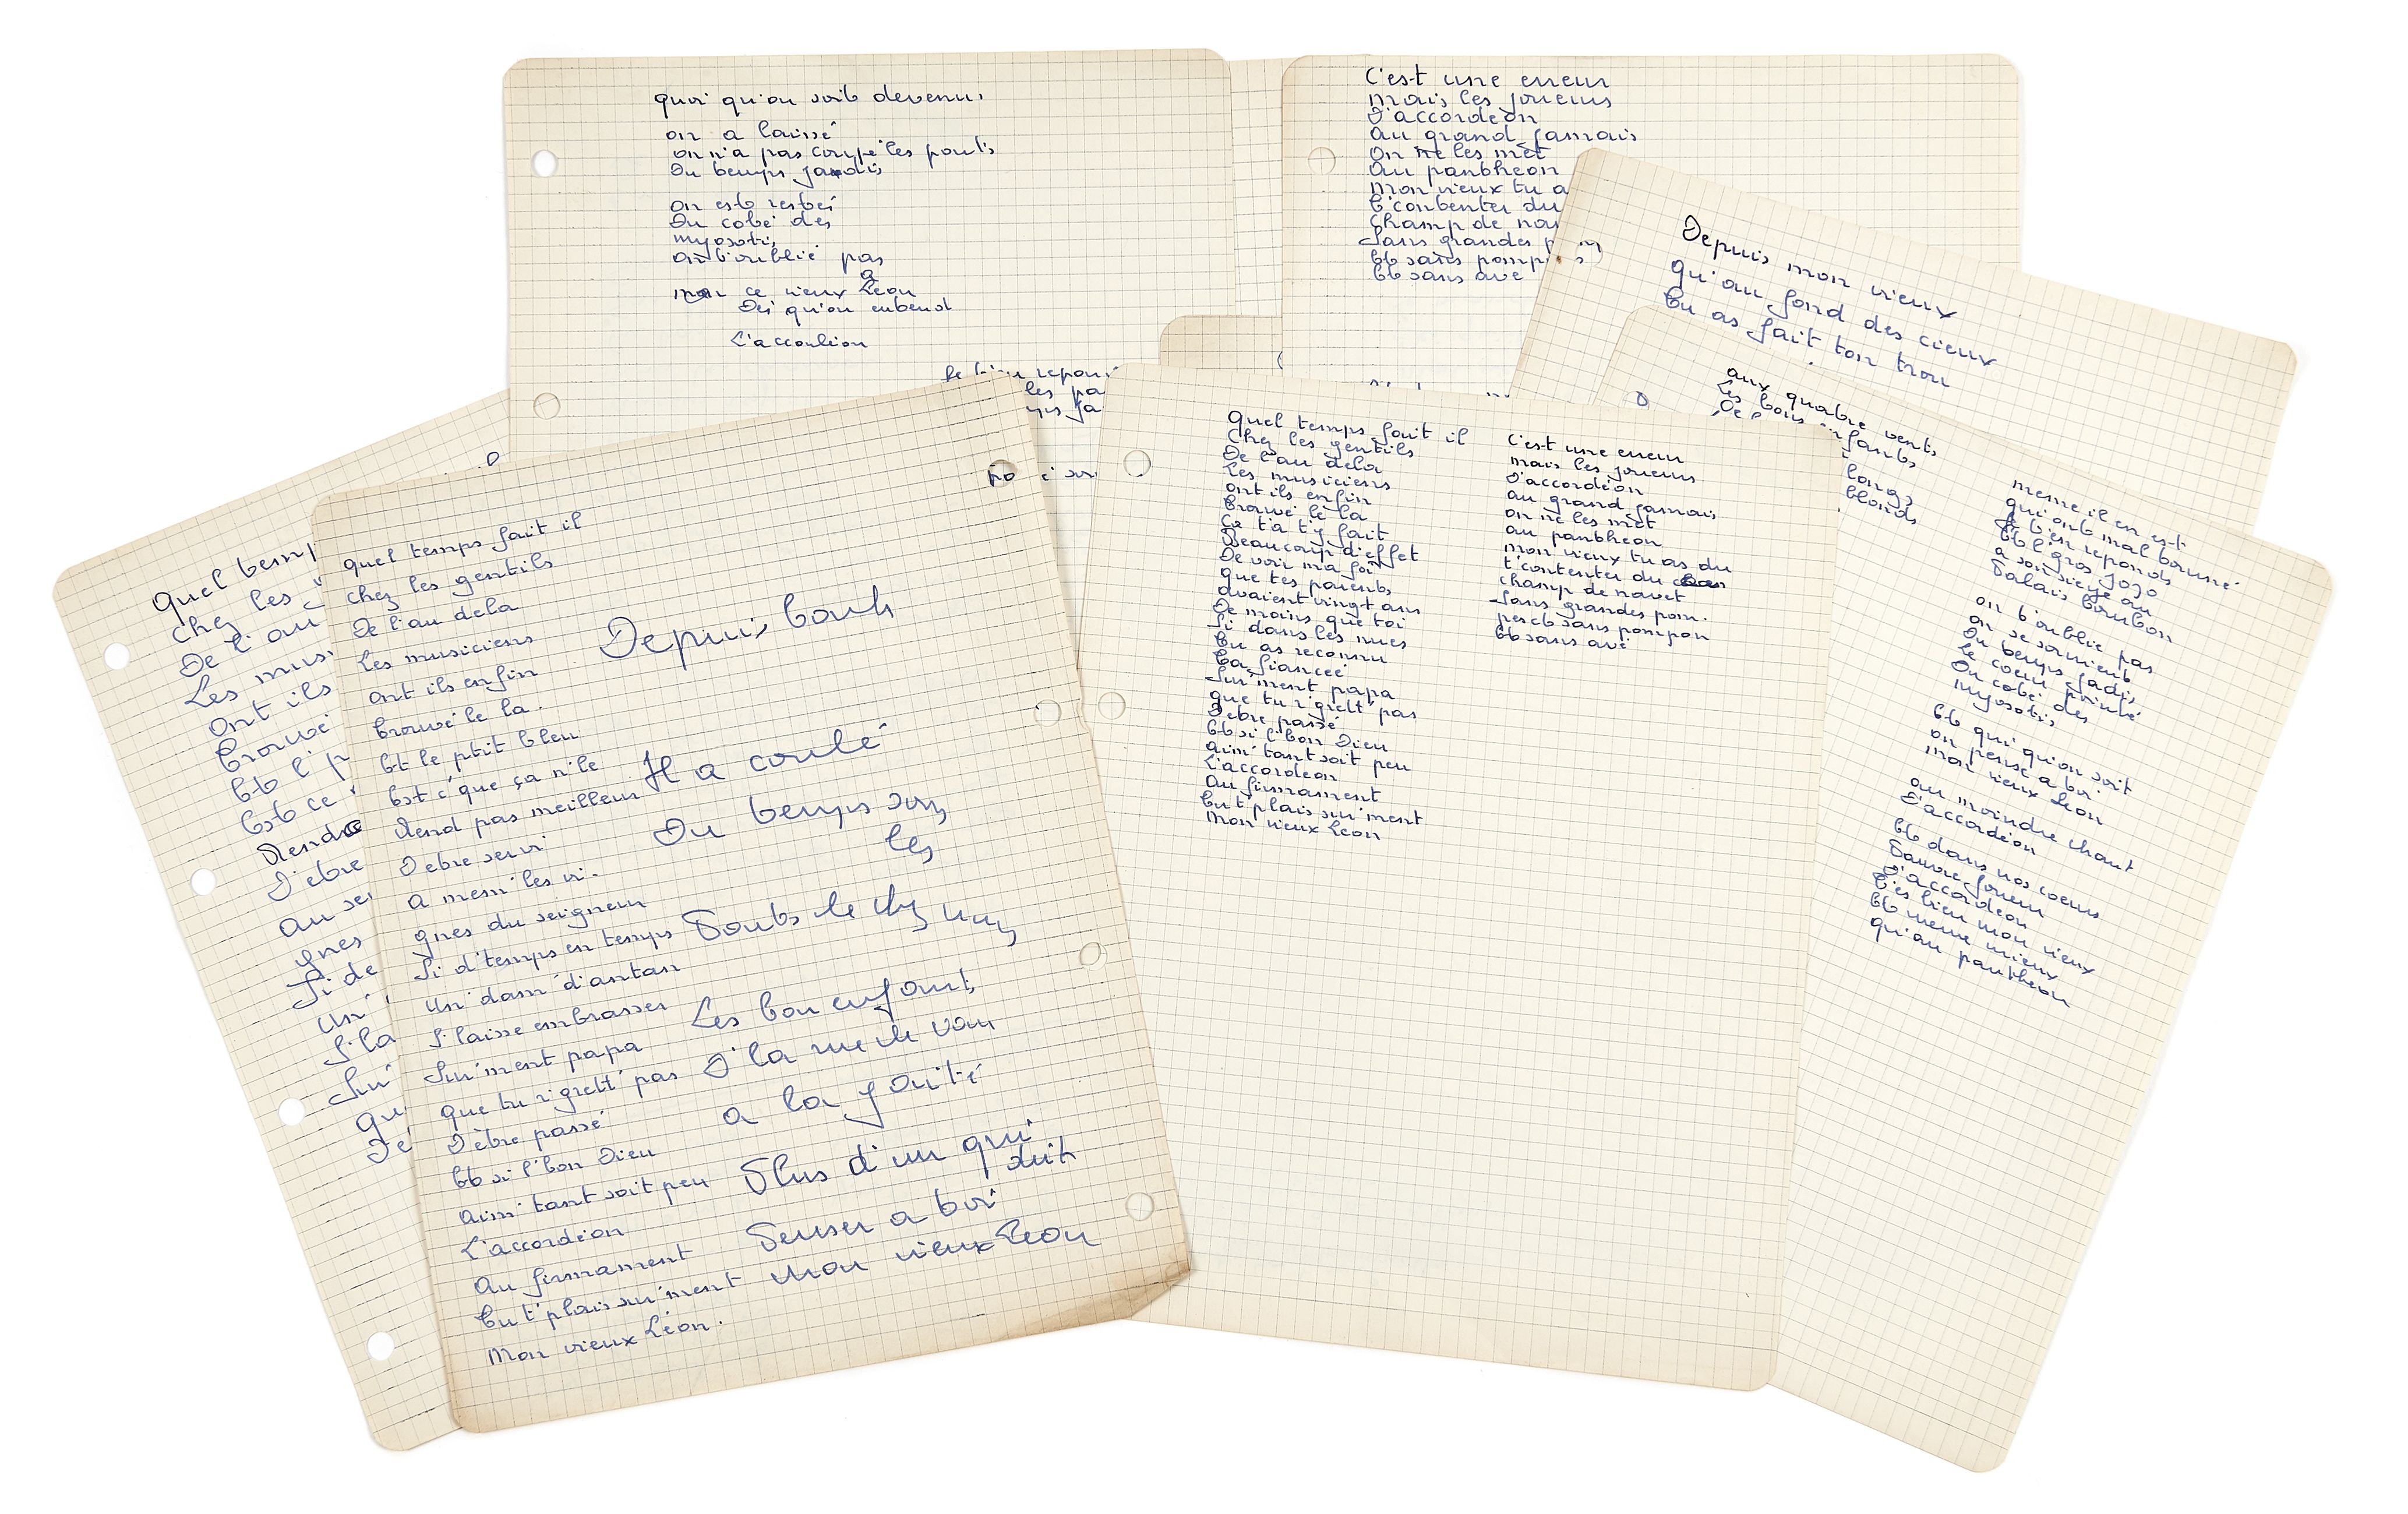 quoi qu'on soit devenu.
on a laissé
on n'a pas coupé les ponts
Du temps jadis
on est resté
Du coté des
myosotis
on t'oublie pas
ce vieux Léon
Dès qu'on entend
L'accordéon
les pa
C'est une erreur
mais les joueurs
D'accordéon
Au grand jamais
On ne les met
Au pantheon
mon vieux tu a
t'contenter du
champ de nav
Sans grandes
et sans
et sans ave
Depuis mon vieux
Qu'au fond des cieux
tu as fait ton trou
aux quatre vents
Les bons enfants
De l
longs
blonds
meme il en est
qui ont mal tourné
Je t'en reponds
et l'gros jojo
a son siege au
Palais bourbon
on t'oublie pas
on se souvient
Du temps jadis
le coeur pointé
Du coté des
myosotis
et qui qu'on soit
on pense a toi
mon vieux Léon
au moindre chant
D'accordéon
et dans nos coeurs
Pauvre joueur
D'accordéon
t'es bien mon vieux
et meme mieux
qu'au pantheon
Quel temp
chez les
De l'au
Les mus
Ont ils
trouvé
et l'p
est ce
Rendre
D'etre
au sei
gnes
Si de
un'
S'la
Sur'
qu
De
quel temps fait il
chez les gentils
De l'au dela
Les musiciens
ont ils enfin
trouvé le la.
et le ptit bleu
est c'que ça n'le
rend pas meilleur
D'etre servi
a mem' les vi.
gnes du seigneur
Si d'temps en temps
un' dam' d'antan
S'laisse embrasser
Sur'ment papa
que tu r'grett' pas
D'être passé
et si l'bon Dieu
aim' tant soit peu
L'accordéon
Au firmament
tu t'plais sur'ment
Mon vieux Léon.
Depuis
Il a coulé
Du temps sous
les
Ponts de chez nous
Les bon enfants
D'la rue de Vanv
a la gaité
Plus d'un qui
doit
Penser a toi
Mon vieux Léon
Quel temps fait il
Chez les gentils
De l'au dela
Les musiciens
ont ils enfin
trouvé le la
Ca t'a t'y fait
Beaucoup d'effet
De voir ma foi
que tes parents
avaient vingt ans
De moins que toi
Si dans les nues
tu as reconnu
ta fiancée
Sur'ment papa
que tu r'grett' pas
D'etre passé
et si l'bon Dieu
aim' tant soit peu
L'accordeon
Au firmament
tu t'plais sur'ment
Mon vieux Léon
C'est une erreur
mais les joueurs
D'accordéon
au grand jamais
on ne les met
au pantheon
mon vieux tu as du
t'contenter du
champ de navet
Sans grandes pom.
pes et sans pompon
et sans avé